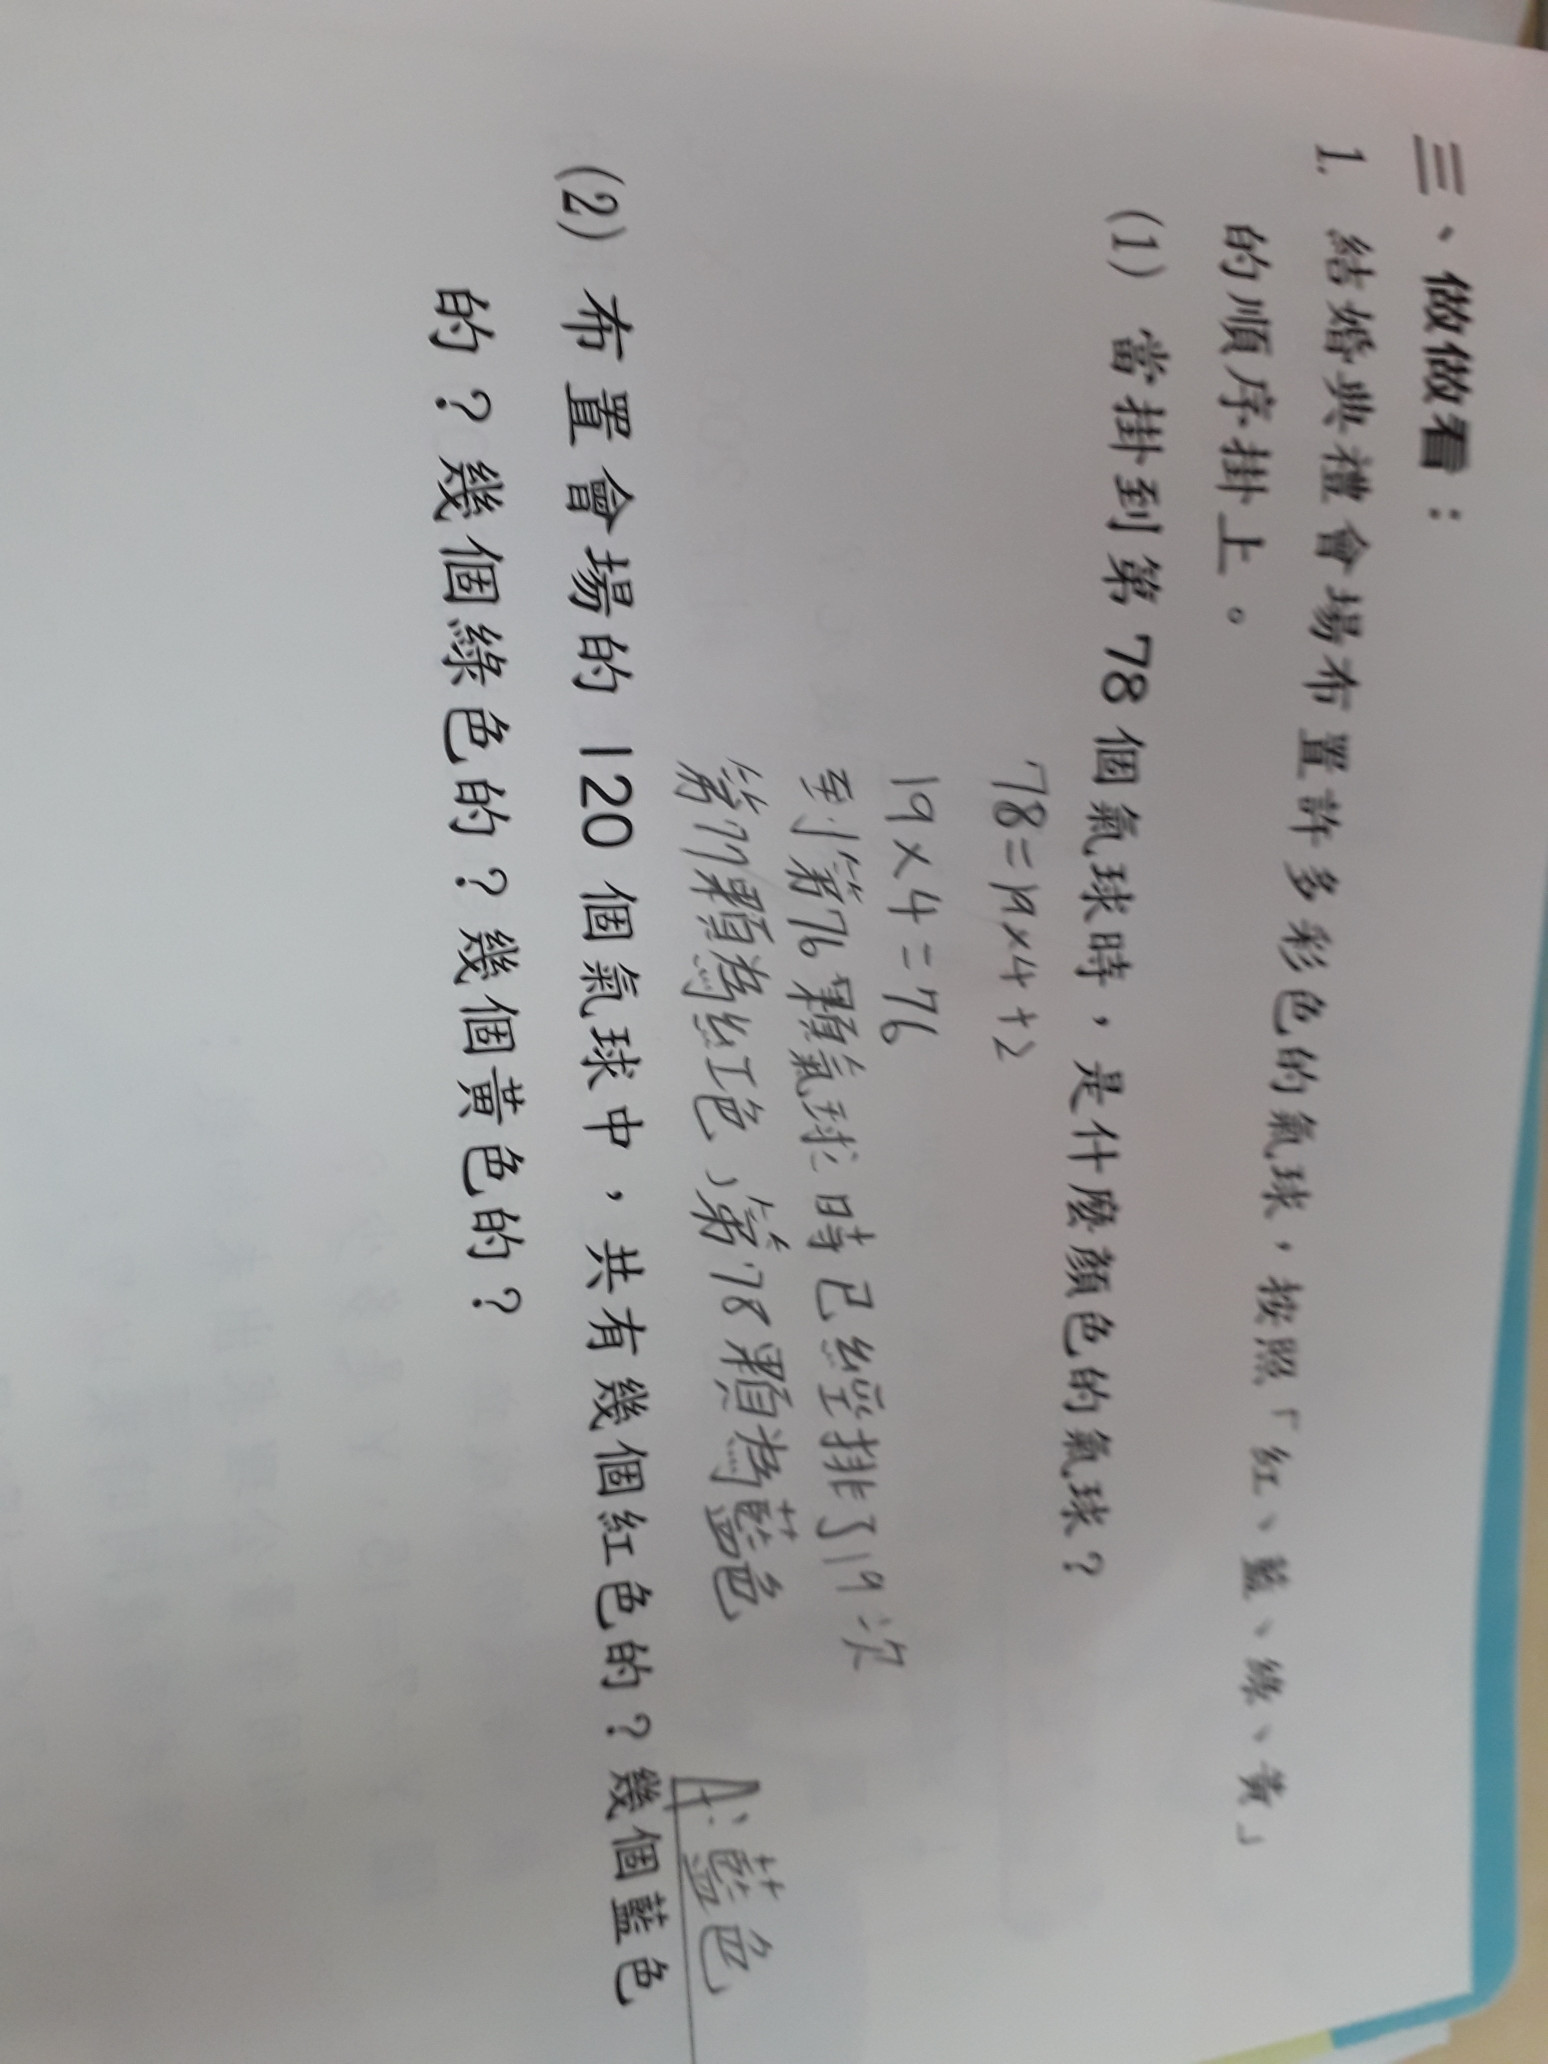 三、做做看：
1. 結婚典禮會場布置許多彩色的氣球，按照「紅、藍、綠、黃」
的順序掛上。
(1) 當掛到第 78 個氣球時，是什麼顏色的氣球？
78=19×4+2
19×4=76
到第76顆氣球時已經排了19次
第77顆為紅色，第78顆為藍色
A:藍色
(2) 布置會場的 120 個氣球中，共有幾個紅色的？幾個藍色
的？幾個綠色的？幾個黃色的？